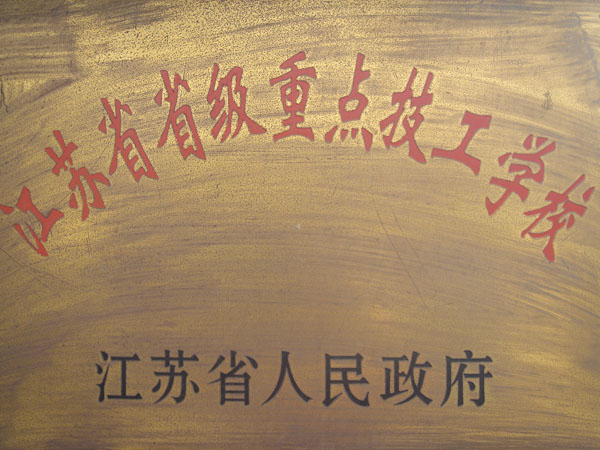 江苏省省级重点技工学校
江苏省人民政府